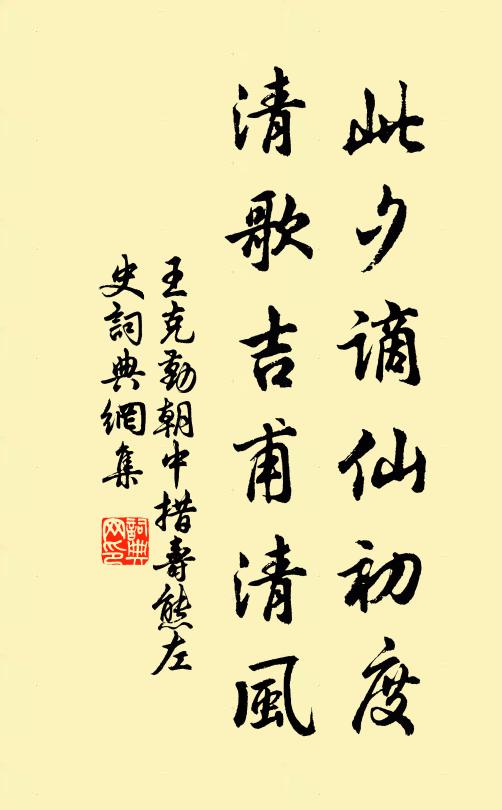 此夕謫仙初度
清歌吉甫清風
王克勤朝中措壽熊左
史詞典網集
詞典网印